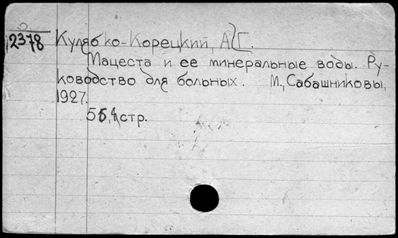 2378
Кулябко-Корецкий, А.Г.
Мацеста и ее минеральные воды. Ру-
ководство для больных. М., Сабашниковы,
1927.
стр.